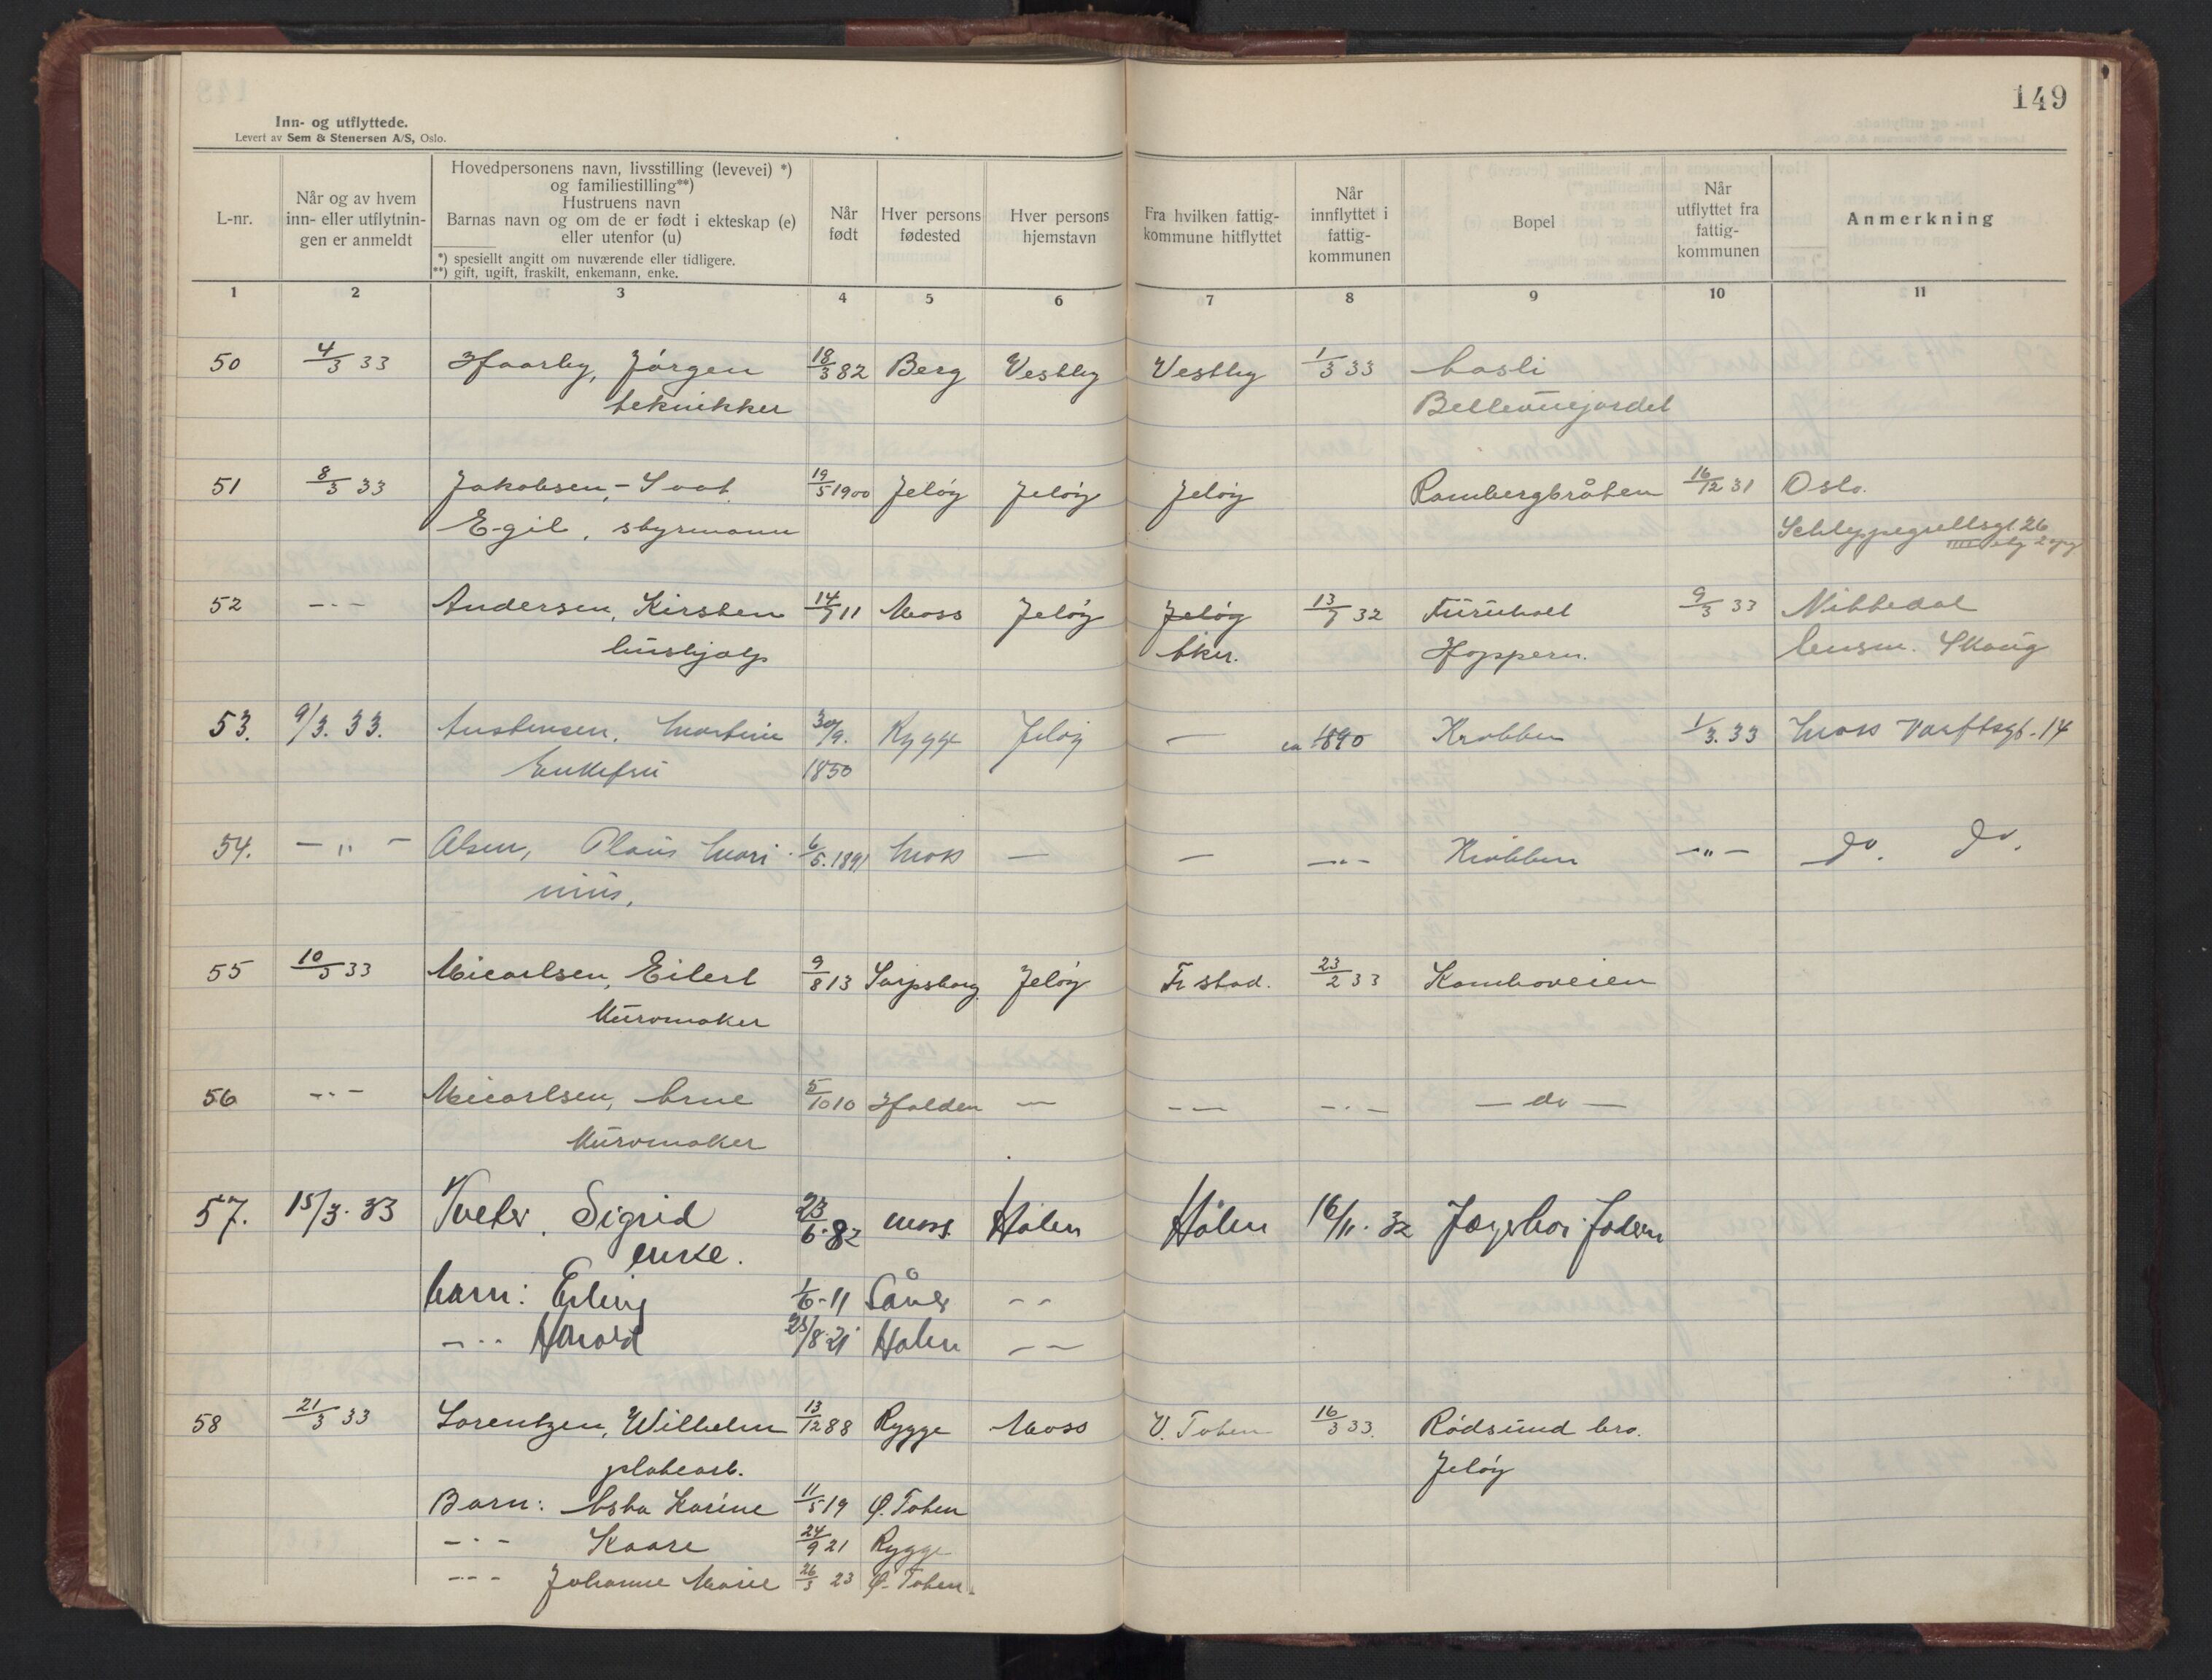 149
Inn- og utflyttede.
Levert av Sem & Stenersen A/S, Oslo.
L-nr.
Når og av hvem
inn- eller utflytnin-
gen er anmeldt
Hovedpersonens navn, livsstilling (levevei) *)
og familiestilling**)
Hustruens navn
Barnas navn og om de er født i ekteskap (e)
eller utenfor (u)
*) spesiellt angitt om nuværende eller tidligere.
**) gift, ugift, fraskilt, enkemann, enke.
Når
født
Hver persons
fødested
Hver persons
hjemstavn
Fra hvilken fattig-
kommune hitflyttet
Når
innflyttet i
fattig-
kommunen
Bopel
Når
utflyttet fra
fattig-
kommunen
Anmerkning
1 2 3 4 5 6 7 8 9 10 11
50 4/3 33 Haarby, Jörgen 18/3 82 Berg Vestby Vestby 1/3 33
teknikker Bellevuejordet
51 8/3 33 Jakobsen, 19/5 1900 Jelöy Jelöy Jelöy Rambergbråten 16/12 31 Oslo.
Egil, styrmann Schleppegrellsgt 26
52 -·- Andersen, Kirsten 14/7 11 Moss Jelöy Jelöy 13/7 32 Furuholt 9/3 33 Nittedal
hushjelp tkn. Hoppern. lensm. Skaug
53. 9/3. 33. Austensen, Martine 30/9. Rygge Jelöy — ca 1890 Krabben 1/3. 33 Moss Varftsgt. 14
Enkefru 1850
54. — „ — Olsen, Olaus Mari- 6/5. 1891 Moss — — -„- Krabben -„- do. do.
nius.
55 10/3 33 Micarlsen, Eilert 9/8 13 Sarpsborg Jelöy Fr stad. 23/2 33 Kamboveien
Murmaker
56 -·- Micarlsen, Arne 5/10 10 Halden — -— -·- — do —
Murmaker
57. 15/3. 33 Tveter, Sigrid 23/6. 82 Moss. Hölen Hölen 16/11. 32
enke.
barn: Erling 1/6-11 Såner - -
-·· Harald 25/8. 21 Hölen — —
58 21/3 33 Lorentzen, Wilhelm 13/12 88 Rygge Moss V. Toten 16/3 33. Rödsund bro.
platearb. Jelöy
Barn: Asta Karine 11/5 19 Ø. Toten
-·- Kaare 24/9 21 Rygge
--- Johanne Marie 26/3 23 Ø. Toten.